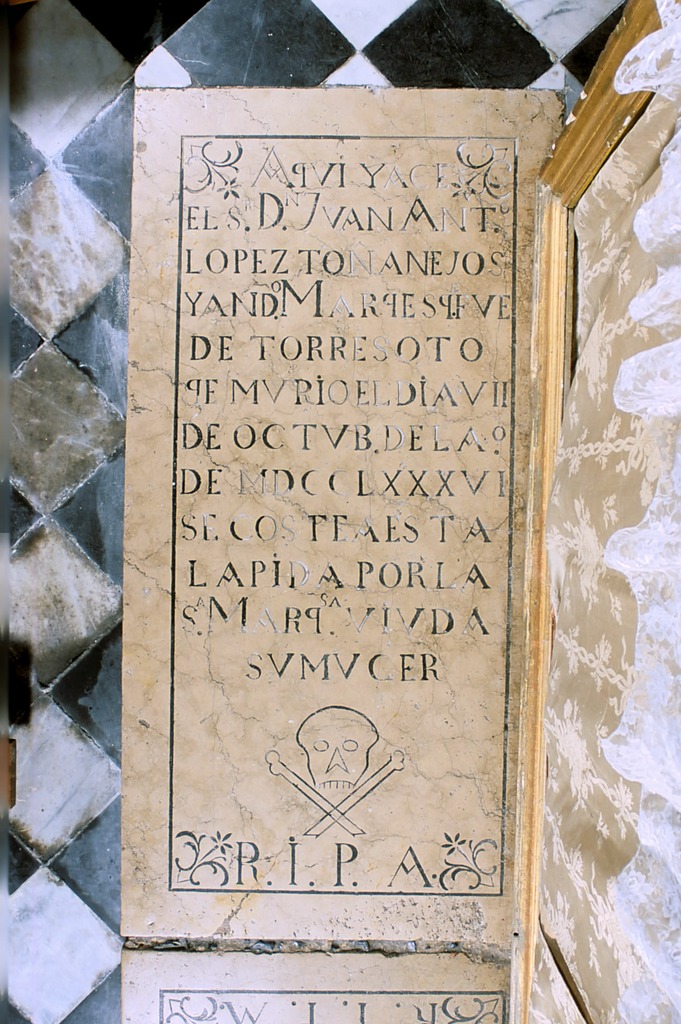 AqVI YACE
EL S.R D.N JVAN ANT.o
LOPEZ TONANEJOS
YAND.o MARqES q.FVE
DE TORRESOTO
qE MVRIO EL DIA VII
DE OCTVB. DE LA.o
DE MDCCLXXXVI
SE COSTEA ESTA
LAPIDA POR LA
S.A MARq.SA VIVDA
SV MUGER
R. I. P. A.